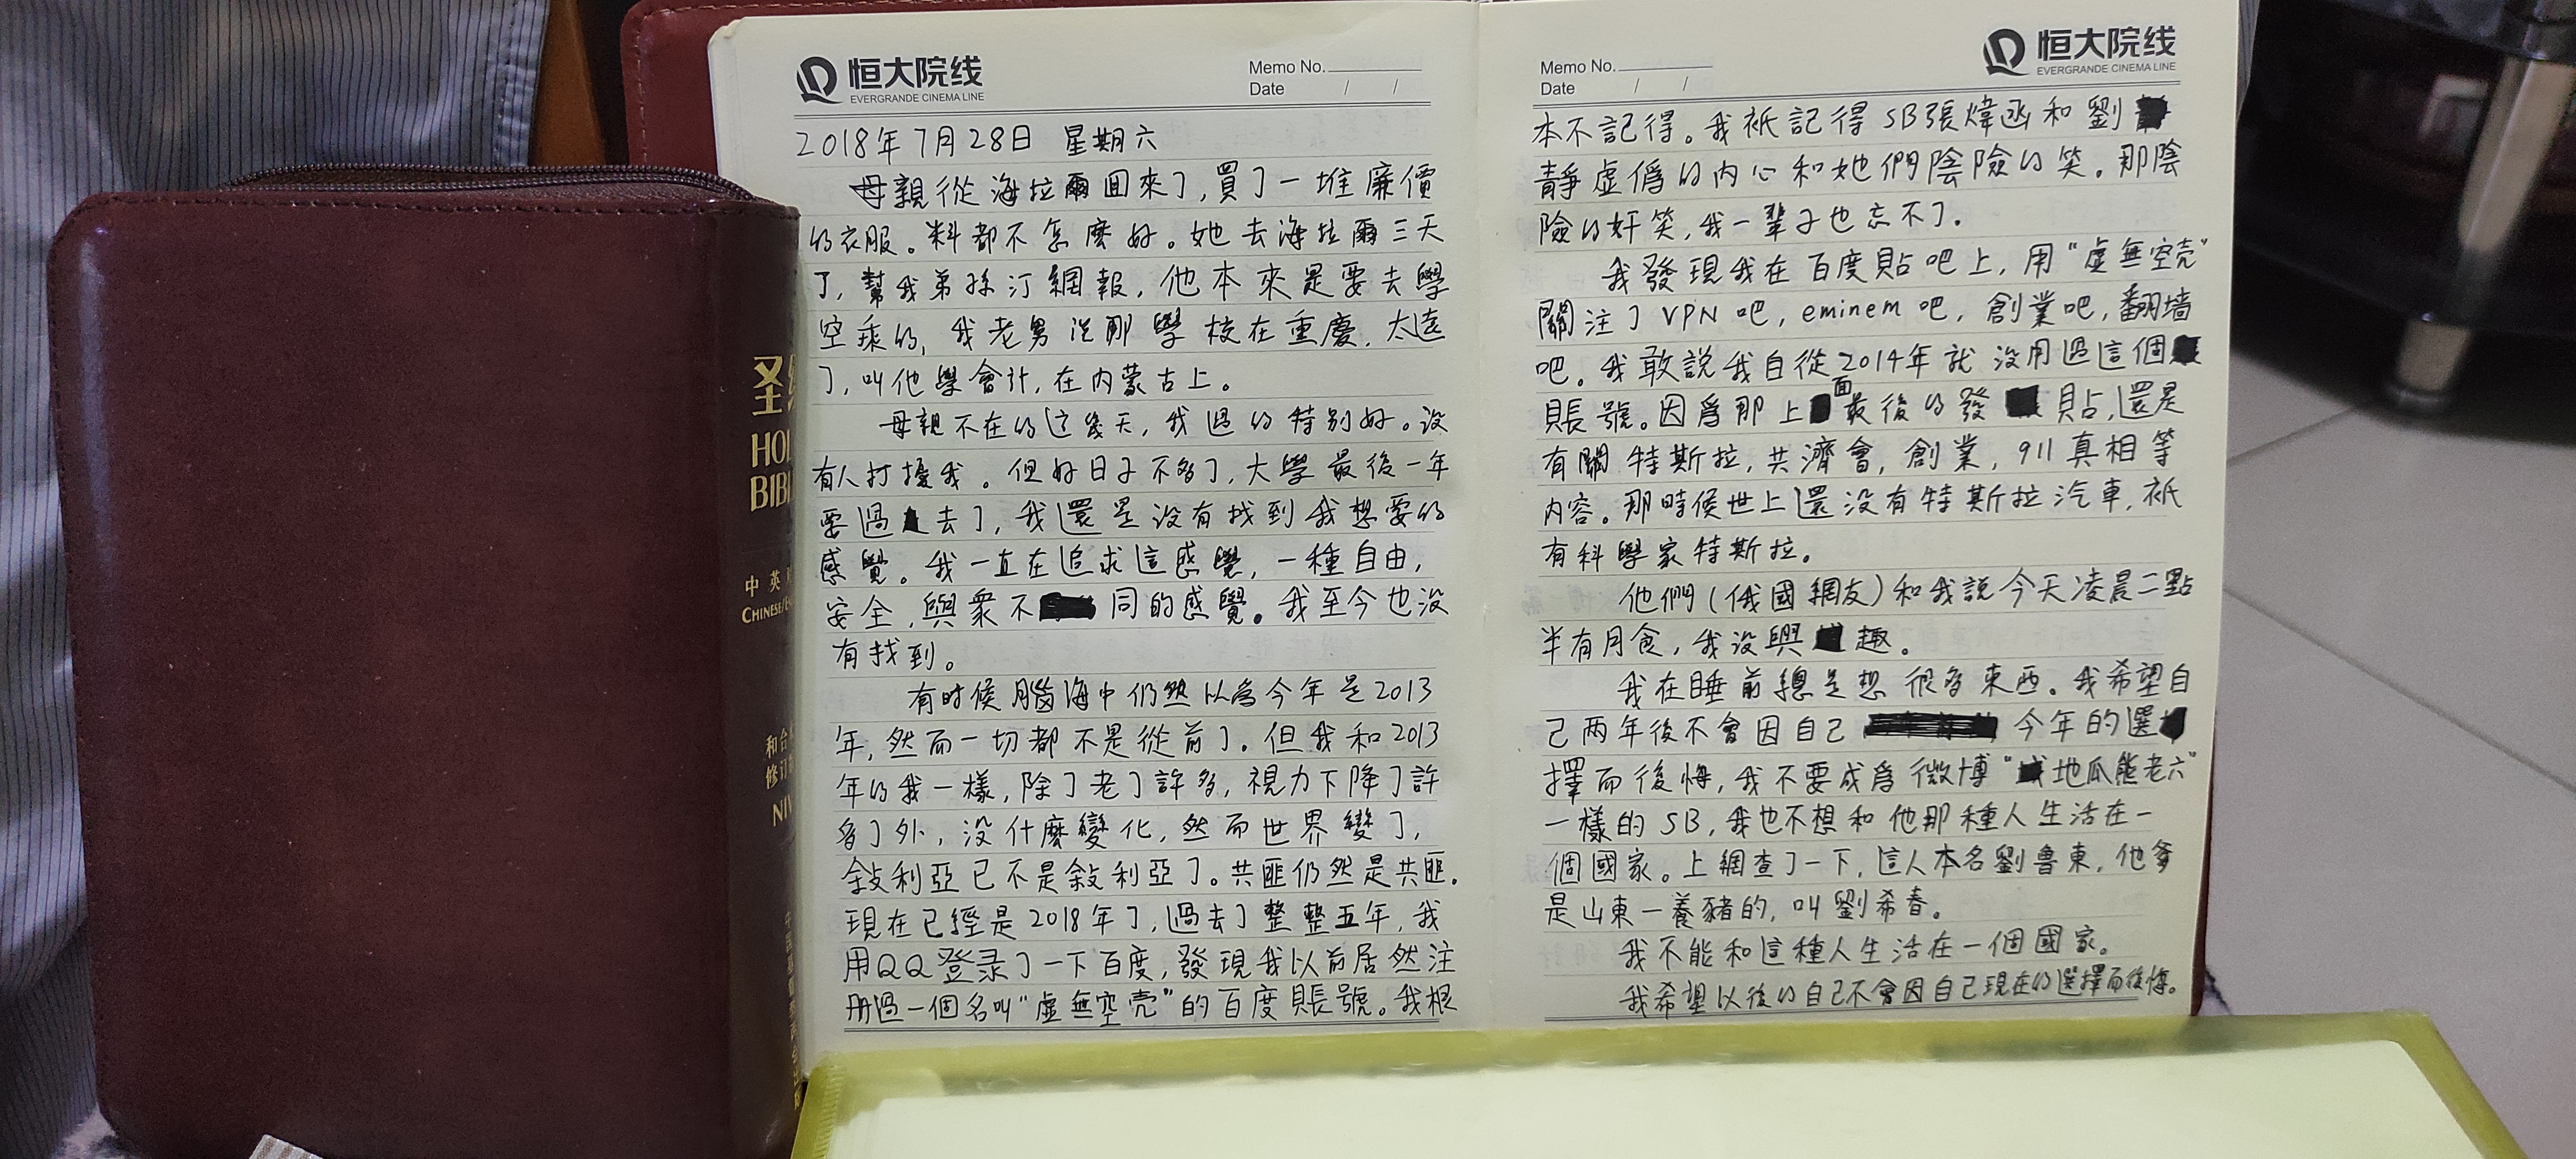 圣
HOL
BIBL
中 英
CHINESE/EN
和合
修订
NIV
恒大院线
EVERGRANDE CINEMA LINE
Memo No.
Date / /
2018年7月28日 星期六
母親從海拉爾回來了,買了一堆廉價
的衣服。料都不怎麽好。她去海拉爾三天
了,幫我弟孫汀網報,他本來是要去學
空乘的,我老男说那學校在重慶,太遠
了,叫他學會計,在内蒙古上。
母親不在的这幾天,我過的特别好。没
有人打擾我。但好日子不多了,大學最後一年
要過去了,我還是没有找到我想要的
感覺。我一直在追求這感覺,一種自由,
安全,與衆不同的感覺。我至今也没
有找到。
有时候腦海中仍然以爲今年是2013
年,然而一切都不是從前了。但我和2013
年的我一樣,除了老了許多,視力下降了許
多了外,没什麽變化,然而世界變了,
敍利亞已不是敍利亞了。共匪仍然是共匪.
現在已經是2018年了,過去了整整五年,我
用QQ登录了一下百度,發現我以前居然注
册過一個名叫“虚無空壳”的百度賬號。我根
恒大院线
EVERGRANDE CINEMA LINE
Memo No.
Date / /
本不記得。我衹記得SB張煒丞和劉
靜虚僞的内心和她們陰險的笑。那陰
險的奸笑,我一輩子也忘不了。
我發現我在百度貼吧上,用“虚無空壳”
關注了VPN吧,eminem吧,創業吧,翻墙
吧。我敢説我自從2014年就没用過這個
賬號。因爲那上面最後的發貼,還是
有關特斯拉,共濟會,創業,911真相等
内容。那時候世上還没有特斯拉汽車,衹
有科學家特斯拉。
他們(俄國網友)和我説今天凌晨二點
半有月食,我没興趣。
我在睡前總是想很多東西。我希望自
己两年後不會因自己今年的選
擇而後悔,我不要成爲微博“地瓜熊老六”
一樣的SB,我也不想和他那種人生活在一
個國家。上網查了一下,這人本名劉魯東,他爹
是山東一養豬的,叫劉希春。
我不能和這種人生活在一個國家。
我希望以後的自己不會因自己現在的選擇而後悔。